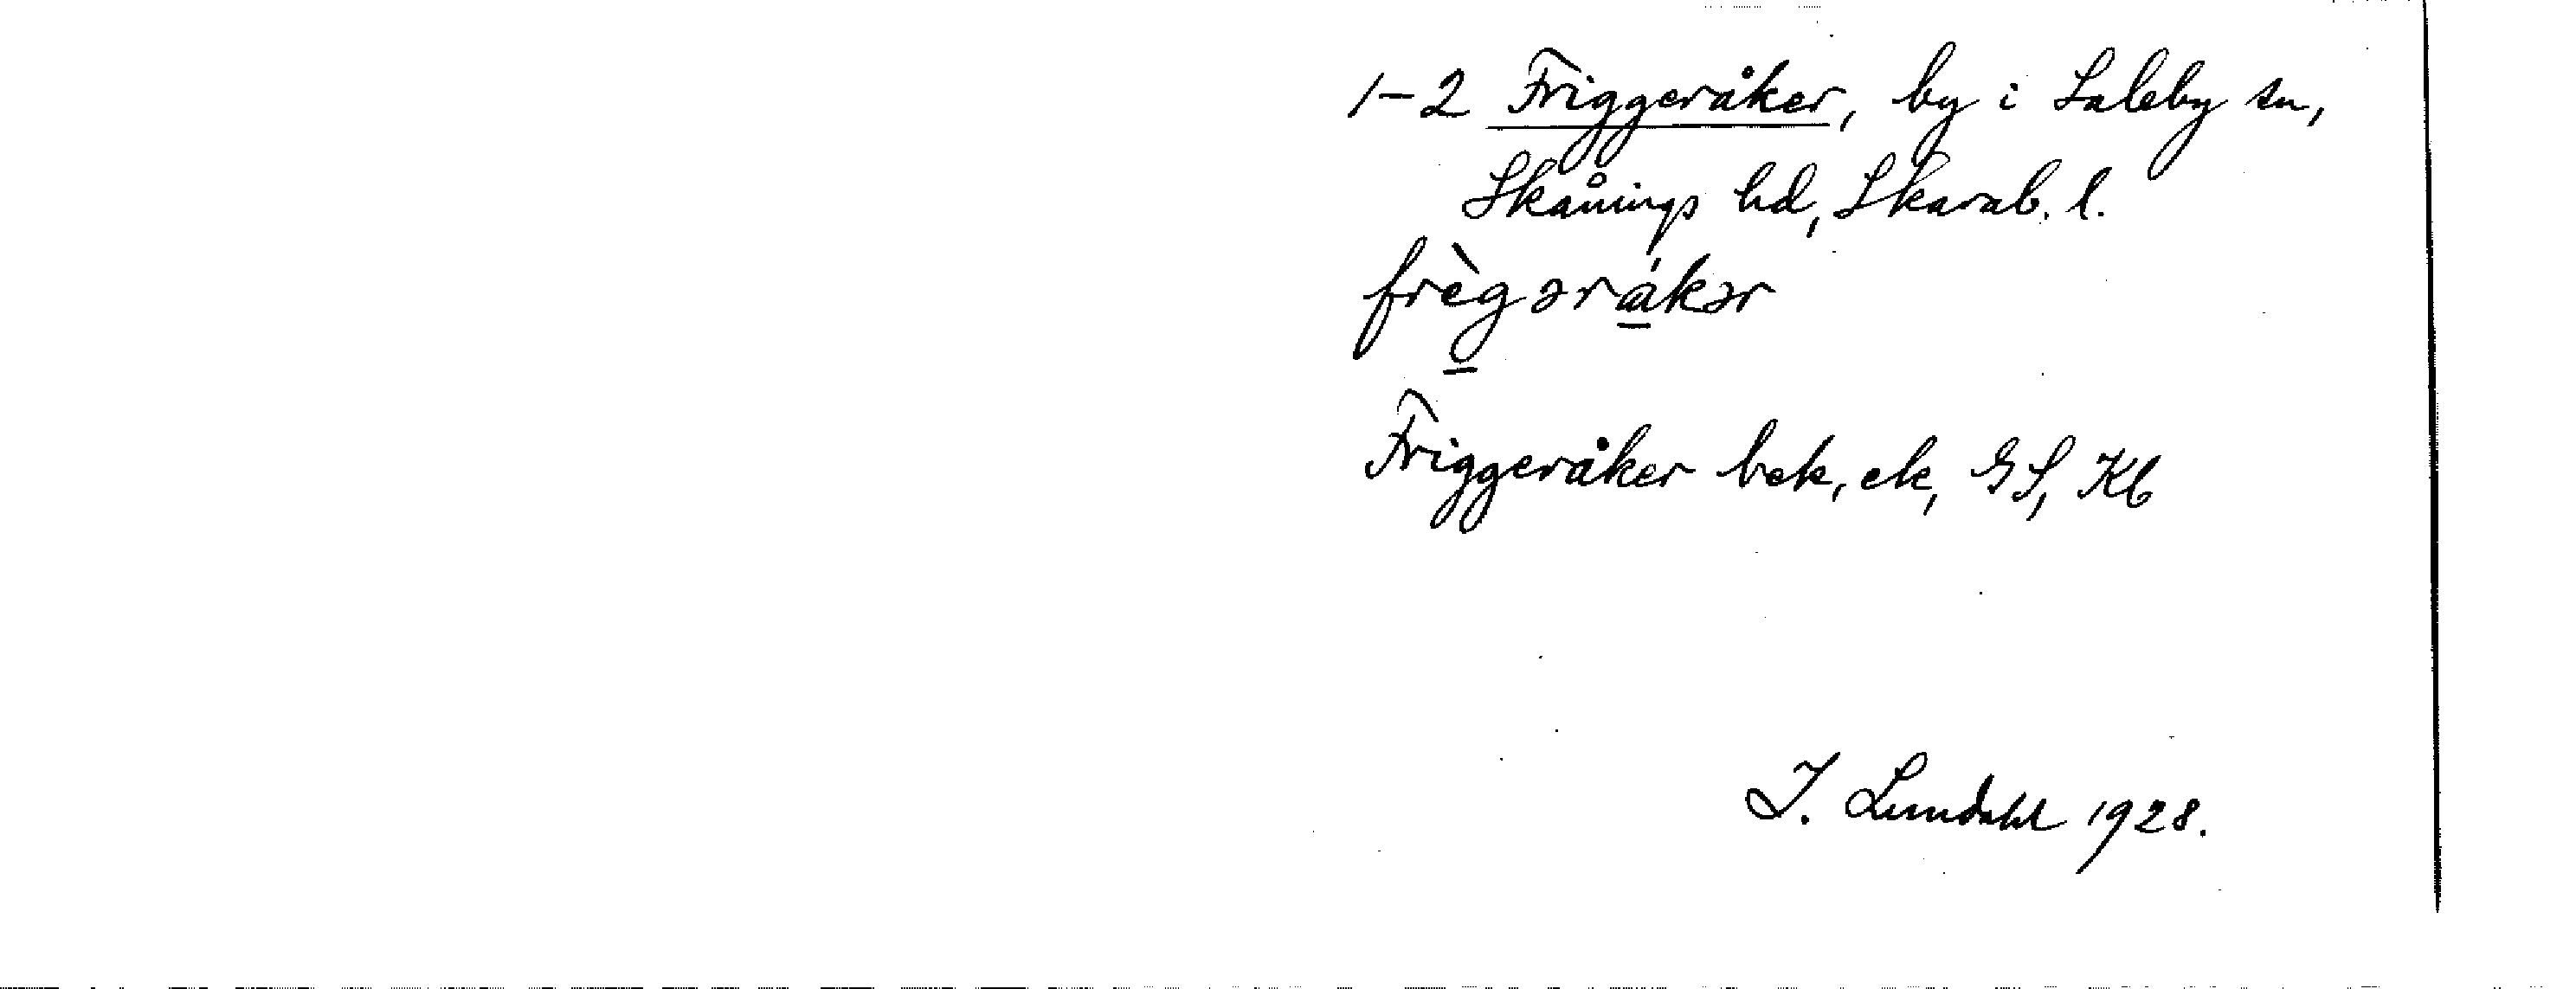 1-2 Friggeråker, by i Saleby sn,
Skånings hd, Skarab. l.
frègəråkər
Friggeråker bek, ek, GS, Kb
I. Lundahl 1928.